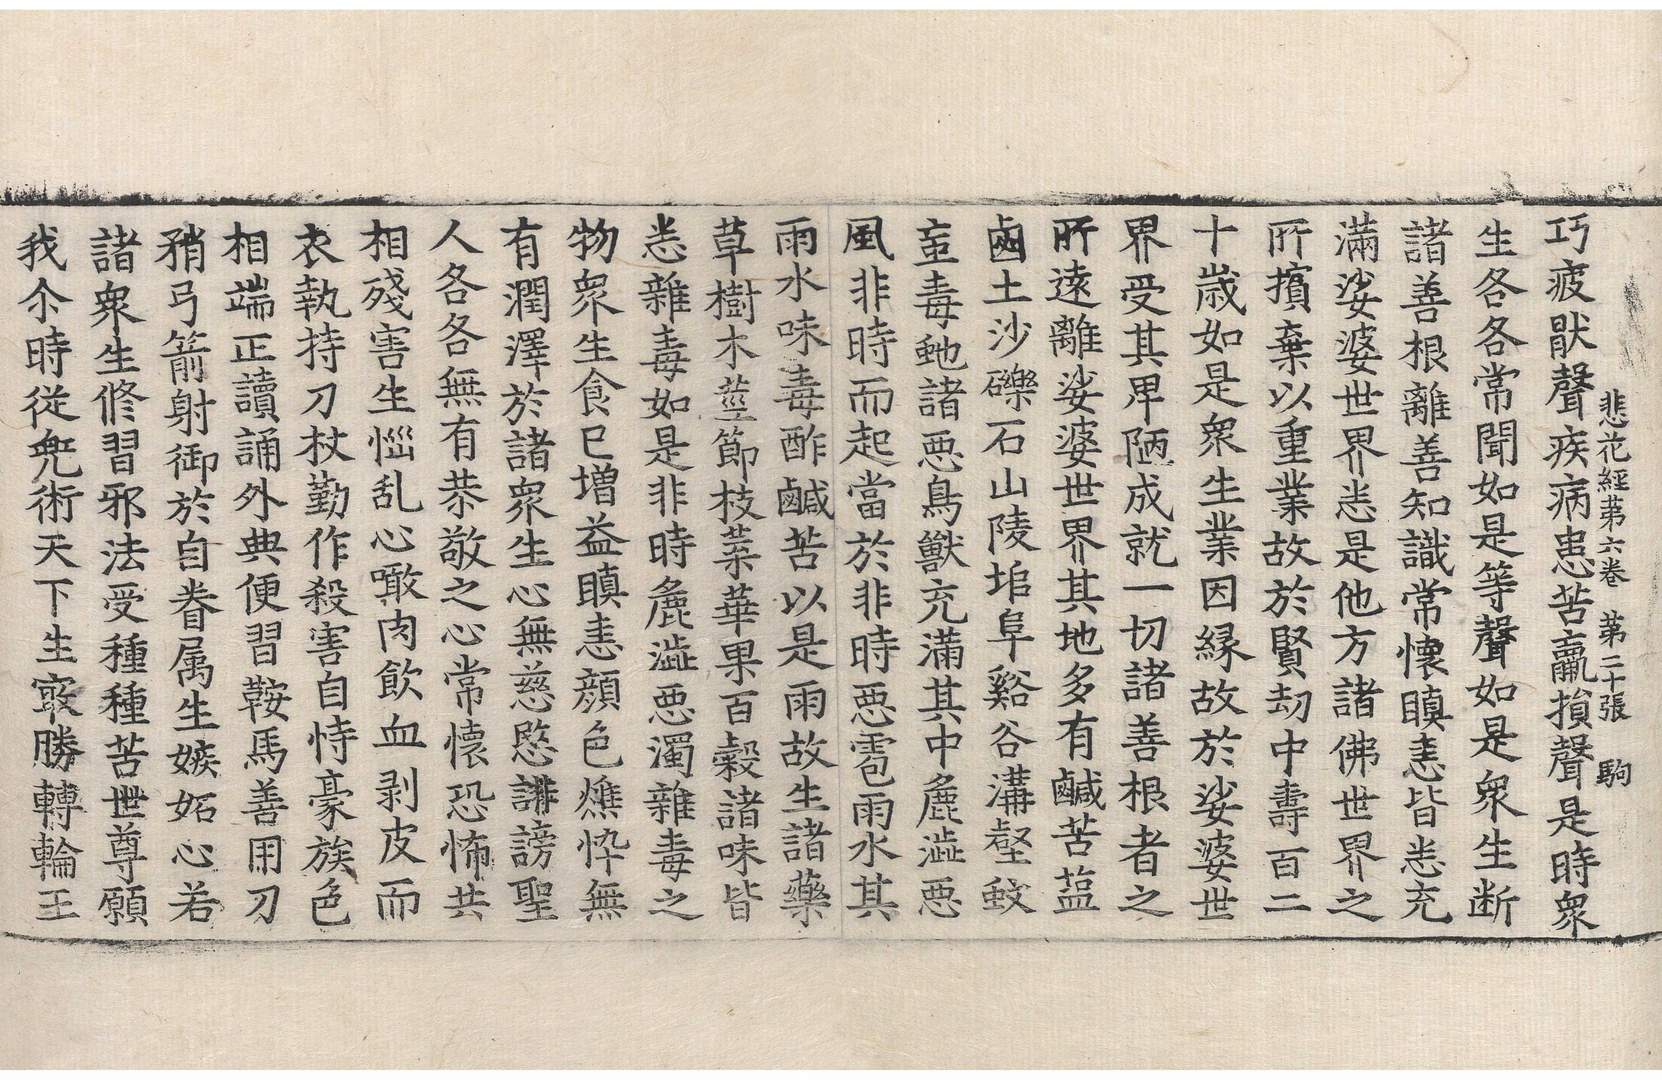 悲花經苐六卷　苐二十張　駒
巧疲猒聲疾病患苦羸損聲是時衆
生各各常聞如是等聲如是衆生断
諸善根離善知識常懷瞋恚皆悉充
滿娑婆世界悉是他方諸佛世界之
所擯棄以重業故於賢劫中壽百二
十歲如是衆生業因縁故於娑婆世
界受其卑陋成就一切諸善根者之
所遠離娑婆世界其地多有鹹苦塩
鹵土沙礫石山陵堆阜谿谷溝壑蚊
䖟毒虵諸惡鳥獸充滿其中麁澁惡
風非時而起當於非時惡雹雨水其
雨水味毒酢鹹苦以是雨故生諸藥
草樹木莖節枝葉華果百穀諸味皆
悉雜毒如是非時麁澁惡濁雜毒之
物衆生食已增益瞋恚顔色憔悴無
有潤澤於諸衆生心無慈愍誹謗聖
人各各無有恭敬之心常懷恐怖共
相殘害生惱乱心噉肉飲血剥皮而
衣執持刀杖勤作殺害自恃豪族色
相端正讀誦外典便習鞍馬善用刀
矟弓箭射御於自眷属生嫉妬心若
諸衆生修習邪法受種種苦世尊願
我尒時從兜術天下生㝡勝轉輪王